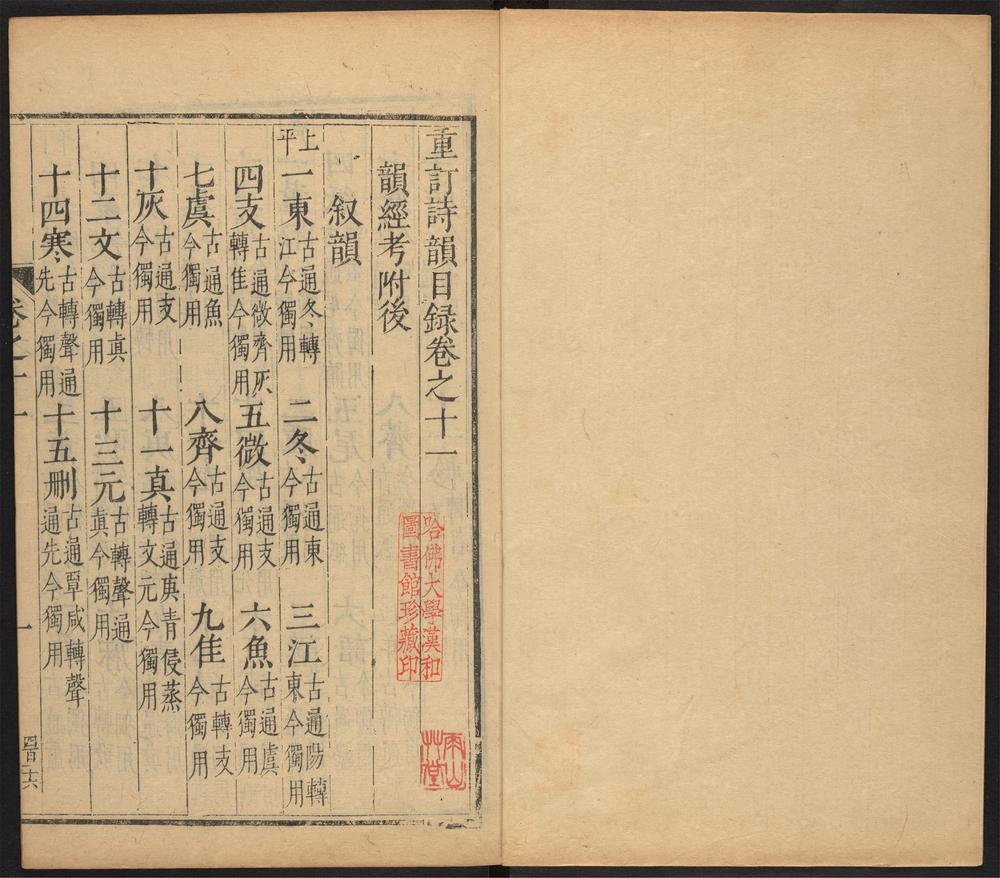 重訂詩韻目録卷之十一
韻經考附後
叙韻
上平
一東 古通冬轉江今獨用 二冬 古通東今獨用 三江 古通陽轉東今獨用
四支 古通微齊灰轉佳今獨用 五微 古通支今獨用 六魚 古通虞今獨用
七虞 古通魚今獨用 八齊 古通支今獨用 九佳 古轉支今獨用
十灰 古通支今獨用 十一真 古通庚青侵蒸轉文元今獨用
十二文 古轉真今獨用 十三元 古轉聲通真今獨用
十四寒 古轉聲通先今獨用 十五删 古通覃咸轉聲通先今獨用
卷之十一
一
哈佛大學漢和圖書館珍藏印
雨山草堂